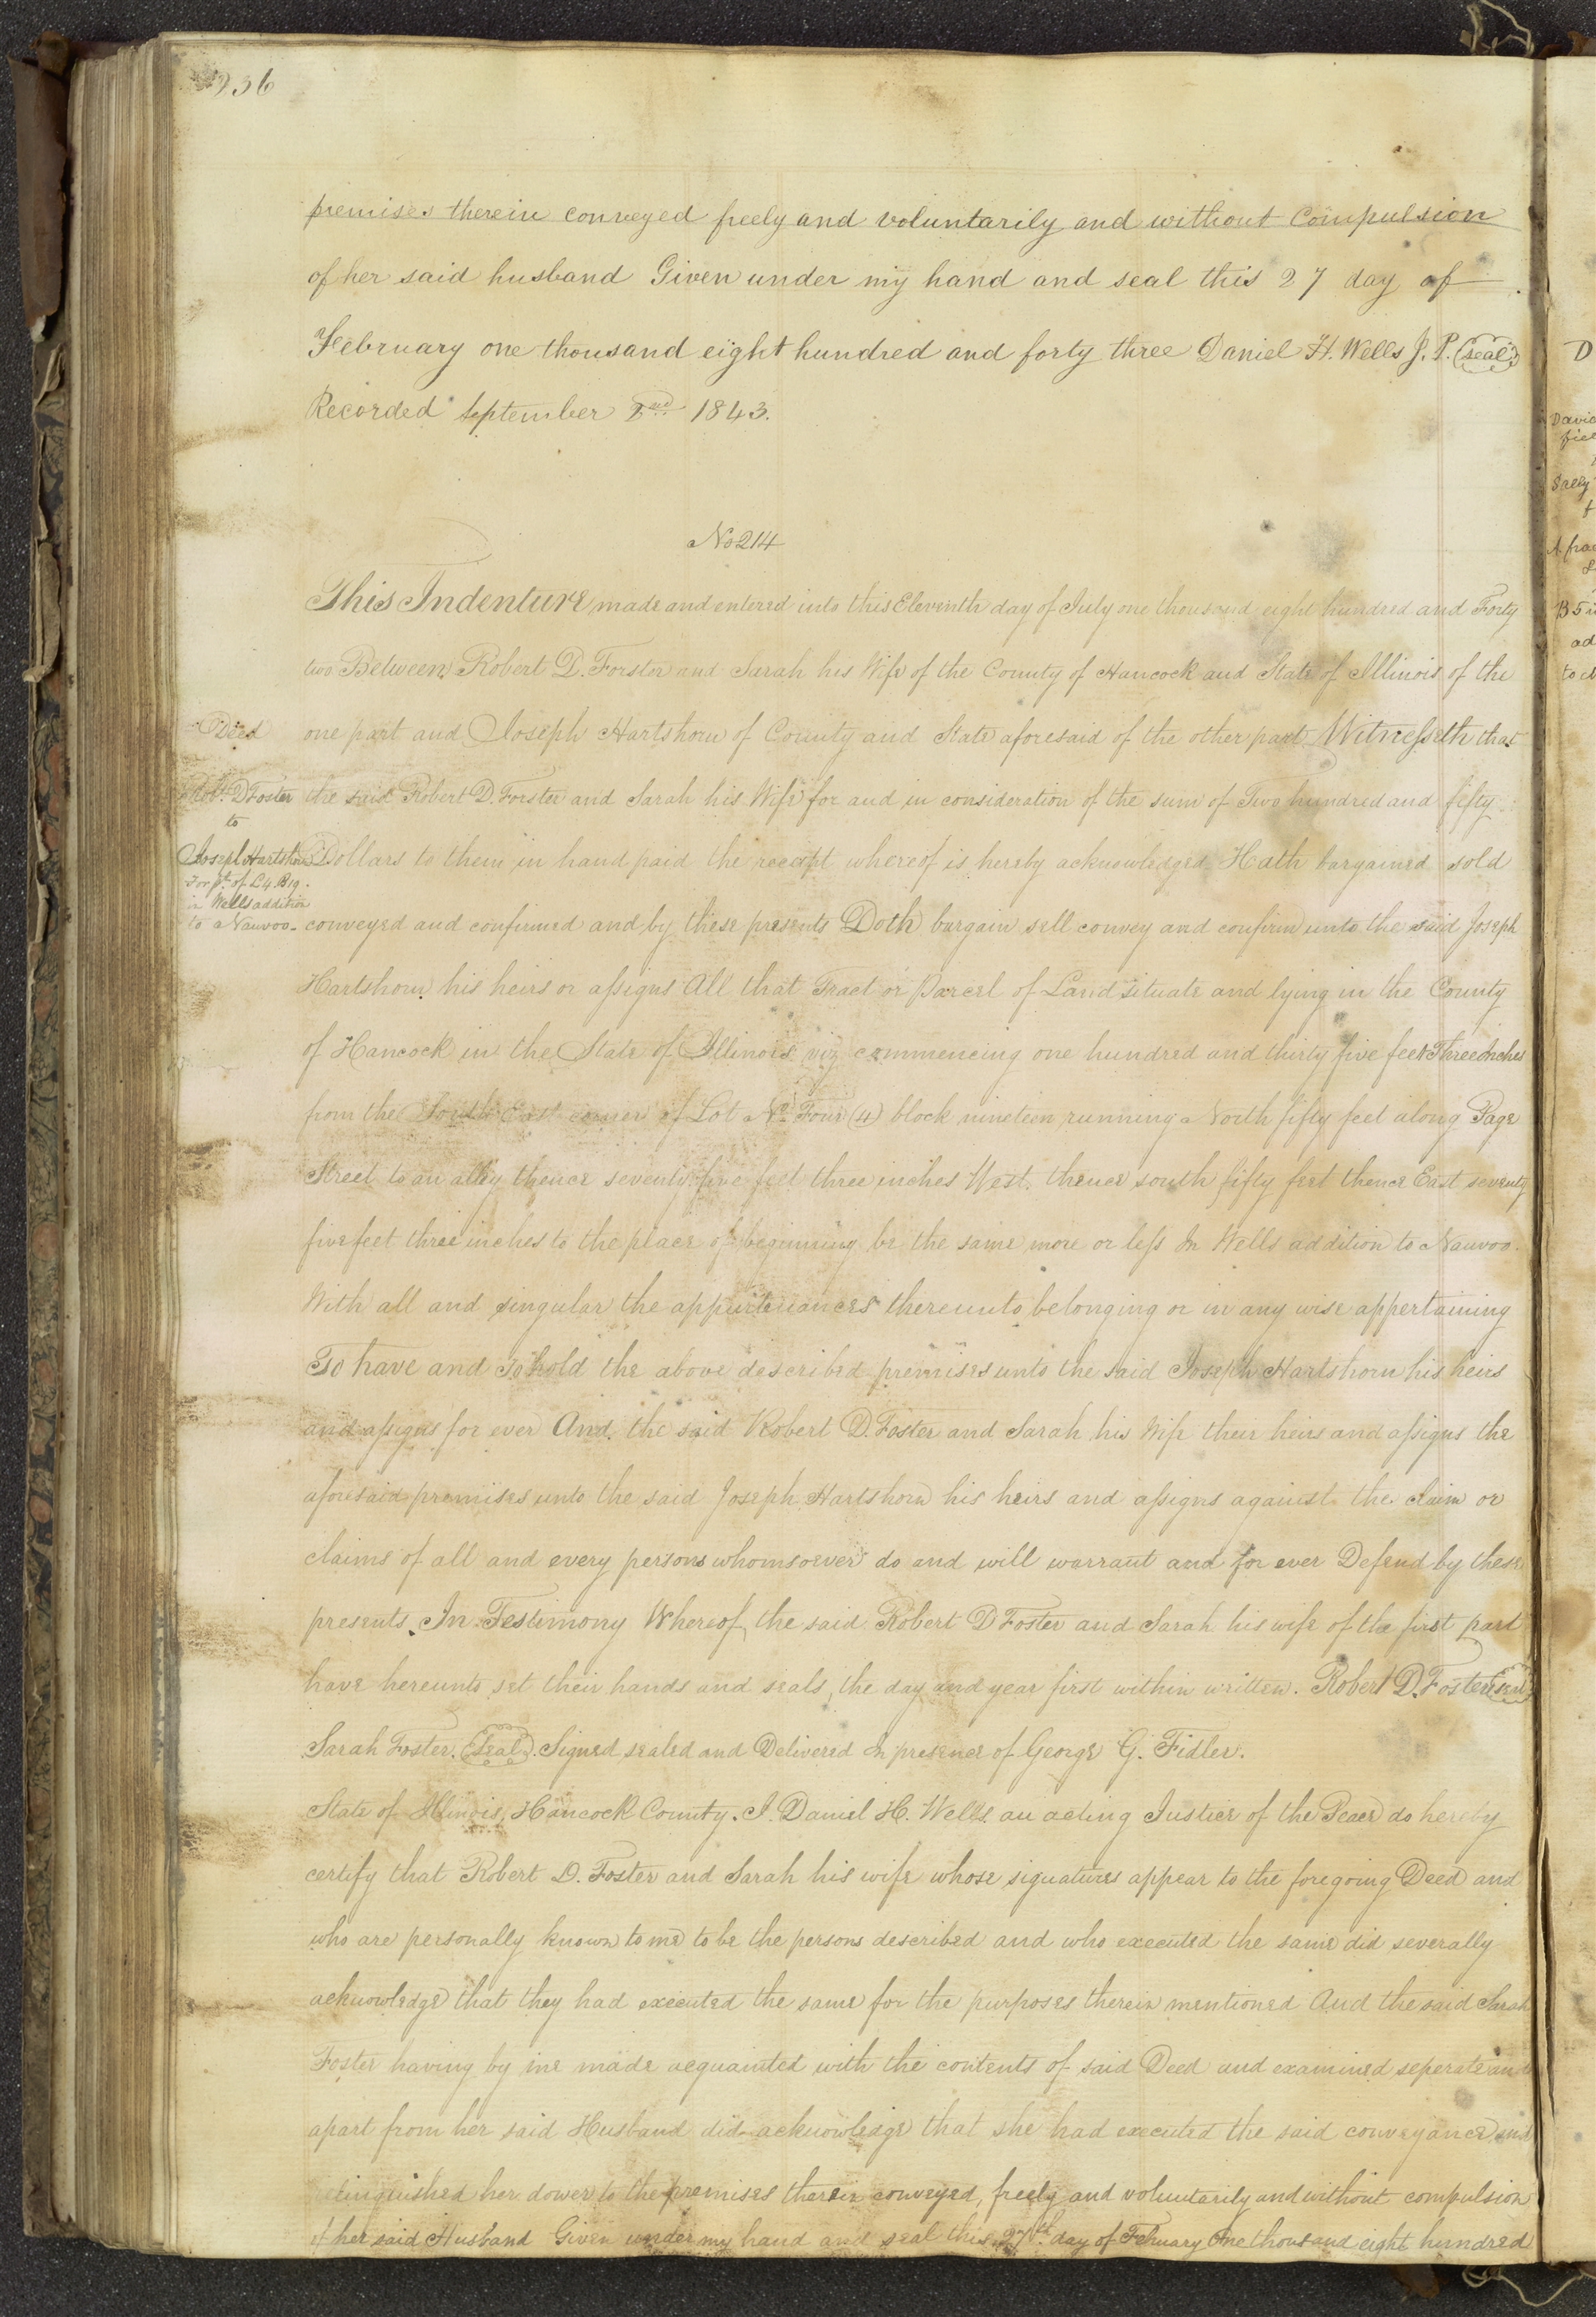 236
premises therein conveyed freely and voluntarily and without Compulsion
of her said husband Given under my hand and seal this 27 day of
February one thousand eight hundred and forty three Daniel H. Wells J. P. (seal)
Recorded September 2nd 1843.
No 214
This Indenture made and entered into this Eleventh day of July one thousand eight hundred and Forty
two Between Robert D. Forster and Sarah his Wife of the County of Hancock and State of Illinois of the
one part and Joseph Hartshorn of County and State aforesaid of the other part Witnesseth that
the said Robert D. Forster and Sarah his Wife for and in consideration of the sum of Two hundred and fifty
Dollars to them in hand paid the receipt whereof is hereby acknowledged Hath bargained sold
conveyed and confirmed and by these presents Doth bargain sell convey and confirm unto the said Joseph
Hartshorn his heirs or assigns All that Tract or Parcel of Land situate and lying in the County
of Hancock in the State of Illinois viz commencing one hundred and thirty five feet Three Inches
from the South East corner of Lot No Four (4) block nineteen running North fifty feet along Page
Street to an alley thence seventy five feet three inches West. thence south fifty feet thence East seventy
five feet three inches to the place of beginning be the same more or less In Wells addition to Nauvoo.
With all and singular the appurtenances thereunto belonging or in any wise appertaining
To have and To hold the above described premises unto the said Joseph Hartshorn his heirs
and assigns for ever And. the said Robert D. Foster and Sarah his Wife their heirs and assigns the
aforesaid premises unto the said Joseph Hartshorn his heirs and assigns against the claim or
claims of all and every persons whomsoever do and will warrant and for ever Defend by these
presents. In Testimony Whereof, the said Robert D Foster and Sarah his wife of the first part
have hereunto set their hands and seals, the day and year first within written. Robert D. Foster (seal)
Sarah Foster. (Seal). Signed, sealed and Delivered In presence of George G. Fidler.
State of Illinois, Hancock County. I. Daniel H. Wells. an acting Justice of the Peace do hereby
certify that Robert D. Foster and Sarah his wife whose signatures appear to the foregoing Deed and
who are personally known to me to be the persons described and who executed the same did severally
acknowledge that they had executed the same for the purposes therein mentioned And the said Sarah
Foster having by me made acquainted with the contents of said Deed and examined seperate and
apart from her said Husband did acknowledge that she had executed the said conveyance and
relinquished her dower to the premises therein conveyed, freely and voluntarily and without compulsion
of her said Husband Given under my hand and seal this 27th. day of Febuary One thousand eight hundred
Deed
Robt. D Foster
to
Joseph Hartshorn
For pt. of L4. B19.
in Wells addition
to Nauvoo.
D
Sally
A frac
B 5 i
ad